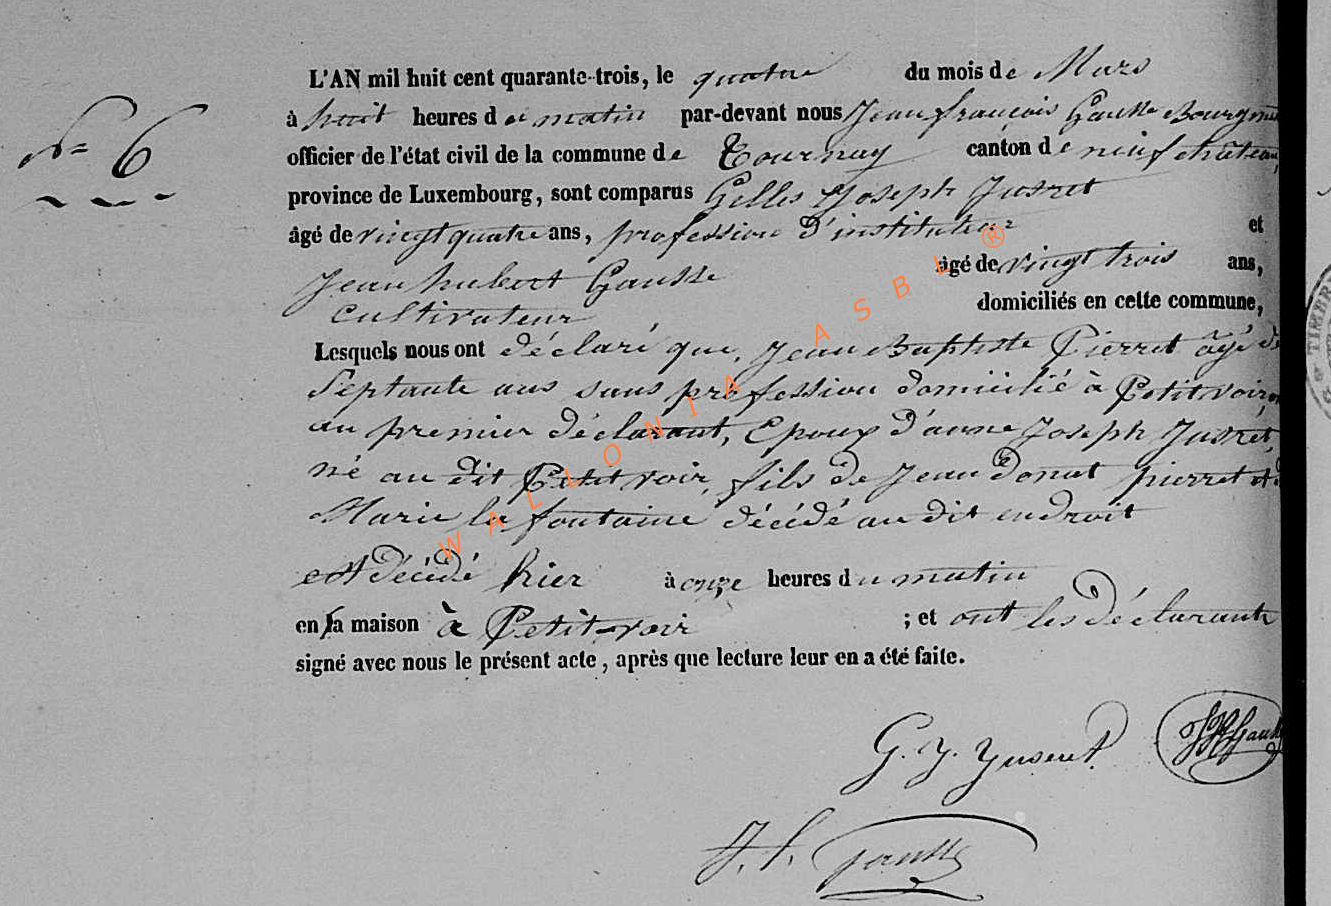 L'AN mil huit cent quarante-trois, le quatre du mois de Mars
N° 6
à huit heures du matin par-devant nous Jean françois Gausse Bourgm
officier de l'état civil de la commune de Tournay canton de neufchâteau,
province de Luxembourg, sont comparus Gelles Joseph Jusret
âgé de vingt quatre ans, profession d'instituteur et
Jean hubert Gausse âgé de vingt trois ans,
cultivateur domiciliés en cette commune,
Lesquels nous ont déclaré que, Jean Baptiste Pierret âgé de
Septante ans sans profession domicilié à Petitvoir,
au premier déclarant, Epoux d'anne Joseph Jusret,
né au dit Petitvoir, fils de Jean donat pierret et d
Marie la fontaine décédé au dit endroit
est décédé hier à onze heures du matin
en la maison à Petit-voir ; et ont les déclarants
signé avec nous le présent acte, après que lecture leur en a été faite.
G. J. Jusret
J. f. Gausse
WALLONIA ASBL ®
TIMBRE